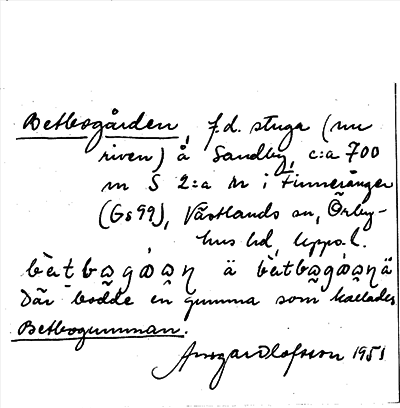 Betbogården, f.d. stuga (nu
riven) å Sandby, c:a 700
m S 2:a n i Finnerånger
(Gs 99), Västlands sn, Örby-
hus hd, Upps. l.
bètbωgὼωη ä bètbωgὼωηä
Där bodde en gumma som kallades
Betbogumman.
Ansgar Olofsson 1951